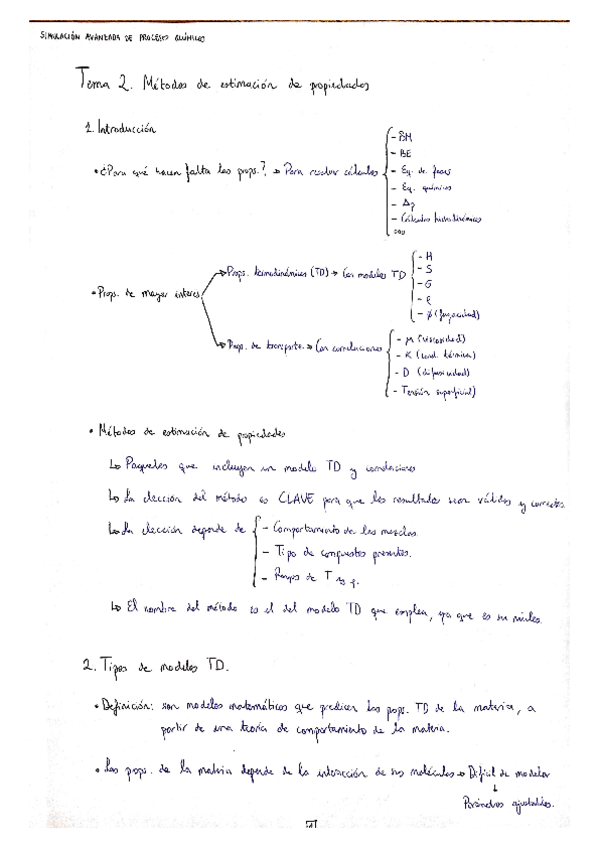 SIMULACIÓN AVANZADA DE PROCESOS QUÍMICOS
Tema 2. Métodos de estimación de propiedades
1. Introducción
• ¿Para qué hacen falta las props.? → Para resolver cálculos
- BM
- BE
- Eq. de fases
- Eq. químicos
- Cálculos hidrodinámicos
...
• Props. de mayor interés
→ Props. termodinámicas (TD) → Con modelos TD
- H
- S
- G
- ρ
- ϕ (fugacidad)
→ Props. de transporte → Con correlaciones
- μ (viscosidad)
- K (cond. térmica)
- D (difusividad)
- Tensión superficial)
• Métodos de estimación de propiedades
↳ Paquetes que incluyen un modelo TD y correlaciones
↳ La elección del método es CLAVE para que los resultados sean válidos y correctos.
↳ La elección depende de
- Comportamiento de las mezclas.
- Tipo de compuestos presentes.
- Rangos de T y P.
↳ El nombre del método es el del modelo TD que emplea, ya que es su núcleo.
2. Tipos de modelos TD.
• Definición: son modelos matemáticos que predicen las props. TD de la materia, a
partir de una teoría de comportamiento de la materia.
• Las props. de la materia depende de la interacción de sus moléculas → Difícil de modelar
↓
Parámetros ajustables.